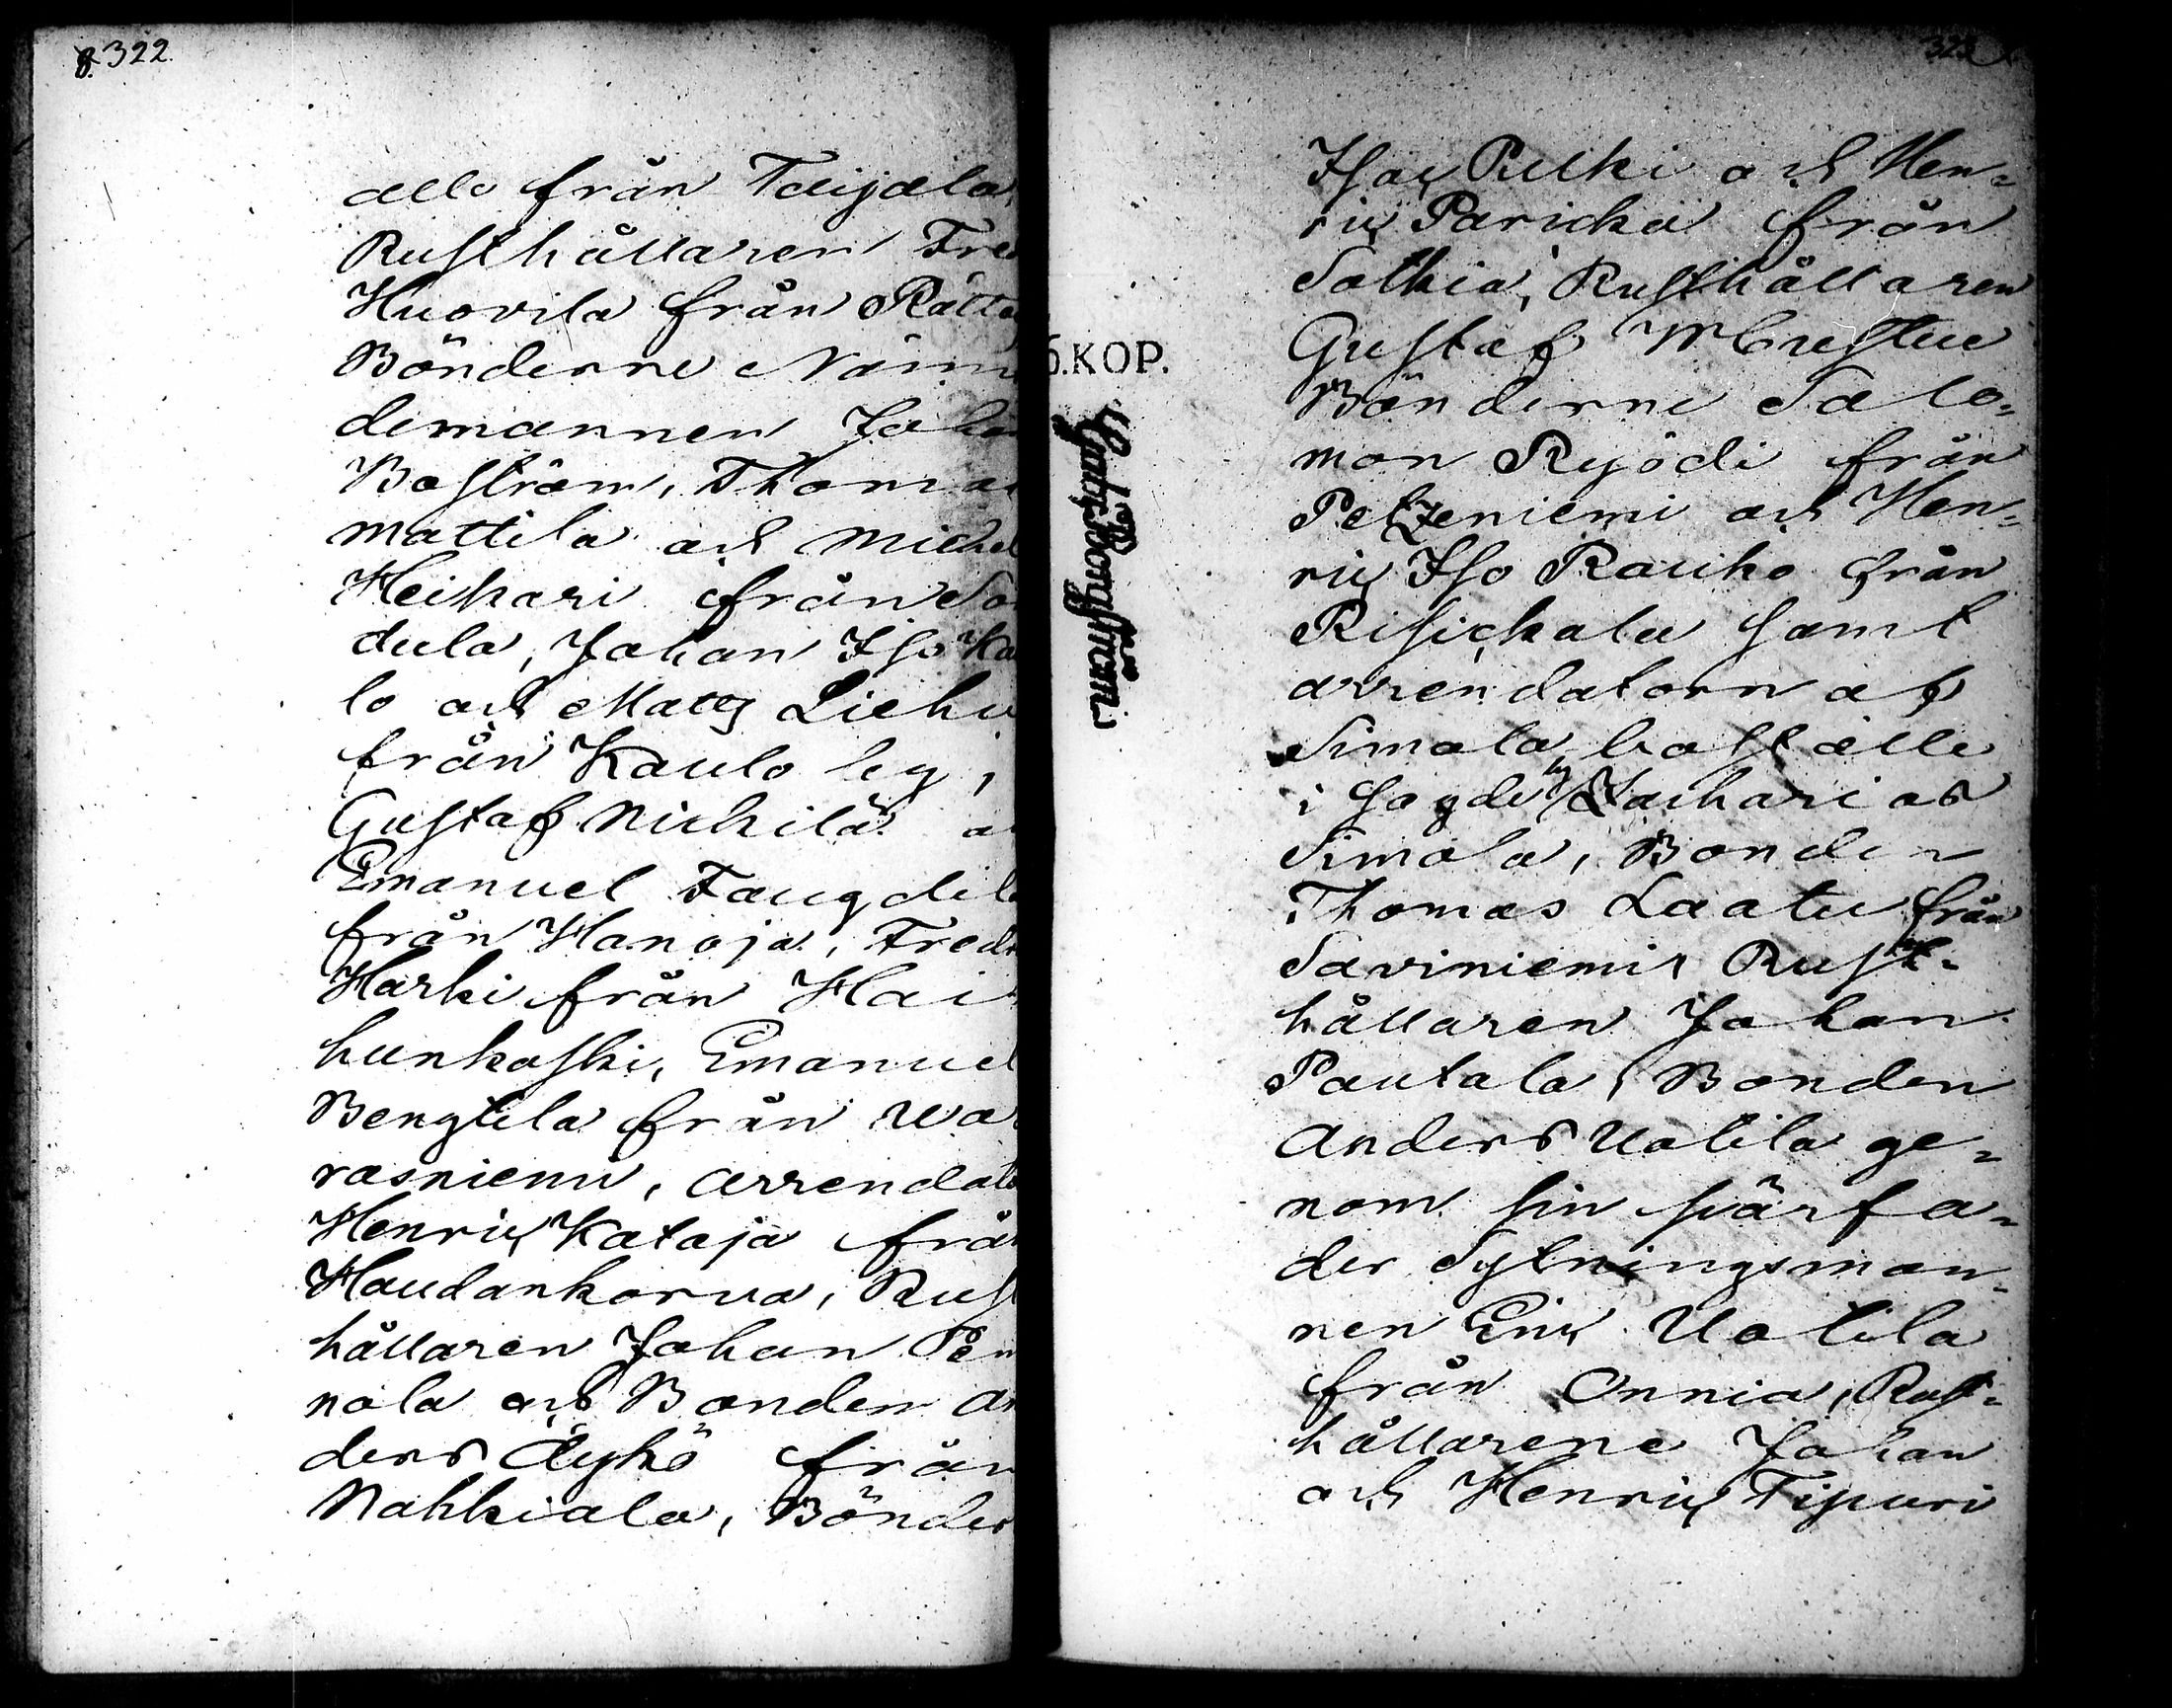 8. 322.
alle från Teijala,
Rusthållaren Fre
Huovila från Rätta
Bönderne Näm
demannen Joha
Boström, Thomas
Mattila och Michel
Heikari från So
dula, Johan Iso Ka
lo och Matts Liehu
från Kaulo by,
Gustaf Nickilä o
Emanuel Faugdil
från Hanoja, Fred
Harki från Hai
hunkoski, Emanuel
Bengtila från Wa
rasniemi, arrendat
Henric Kataja frå
Haudankorva, Rus
hållaren Johan Pen
nola och Bonden An
ders Äykö från
Nahkiala, Bönder
323
Isac Pulki och Hen=
ric Paricka från
Sothia, Rusthållaren
Gustaf
Bönderne Salo=
mon Ryödi från
Peltzeniemi och Hen=
ric Iso Rauko från
Risickala samt
arrendatorn af
Simola boställe
i Sogde by Zacharias
Simola, Bonden
Thomas Laatu från
Saviniemi Rust=
hållaren Johan
Pautala, Bonden
Anders Uotila ge=
nom sin svärfa=
der Sytningsman=
nen Eric Uotila
från Onnia, Rust=
hållarene Johan
och Henric Tipuri
6.KOP.